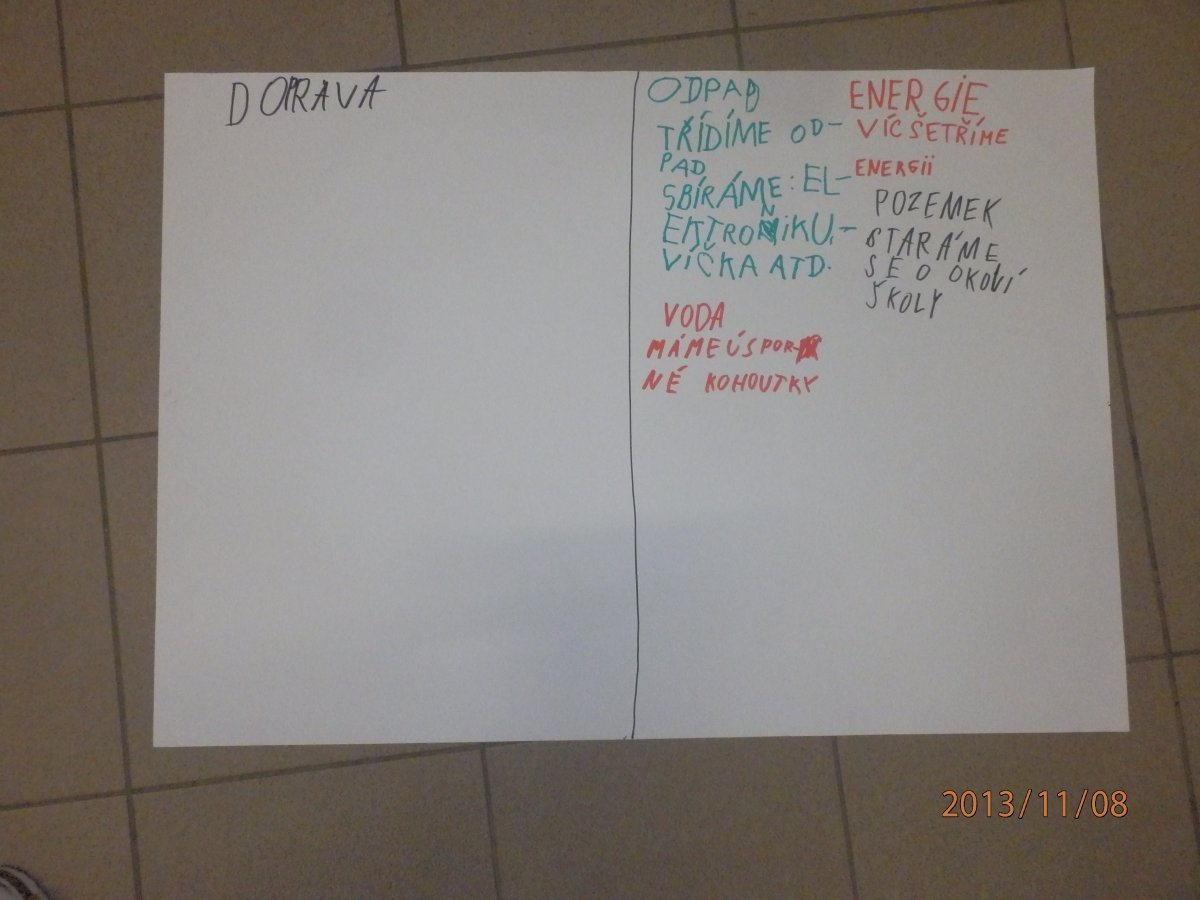 DOPRAVA
ODPAD
TŘÍDÍME OD-
PAD
SBÍRÁME: EL-
EKTRONIKU,-
VÍČKA ATD.
VODA
MÁMEÚSPOR-
NÉ KOHOUTKY
ENERGIE
VÍCŠETŘÍME
ENERGII
POZEMEK
STARÁME
SE O OKOLÍ
ŠKOLY
2013/11/08